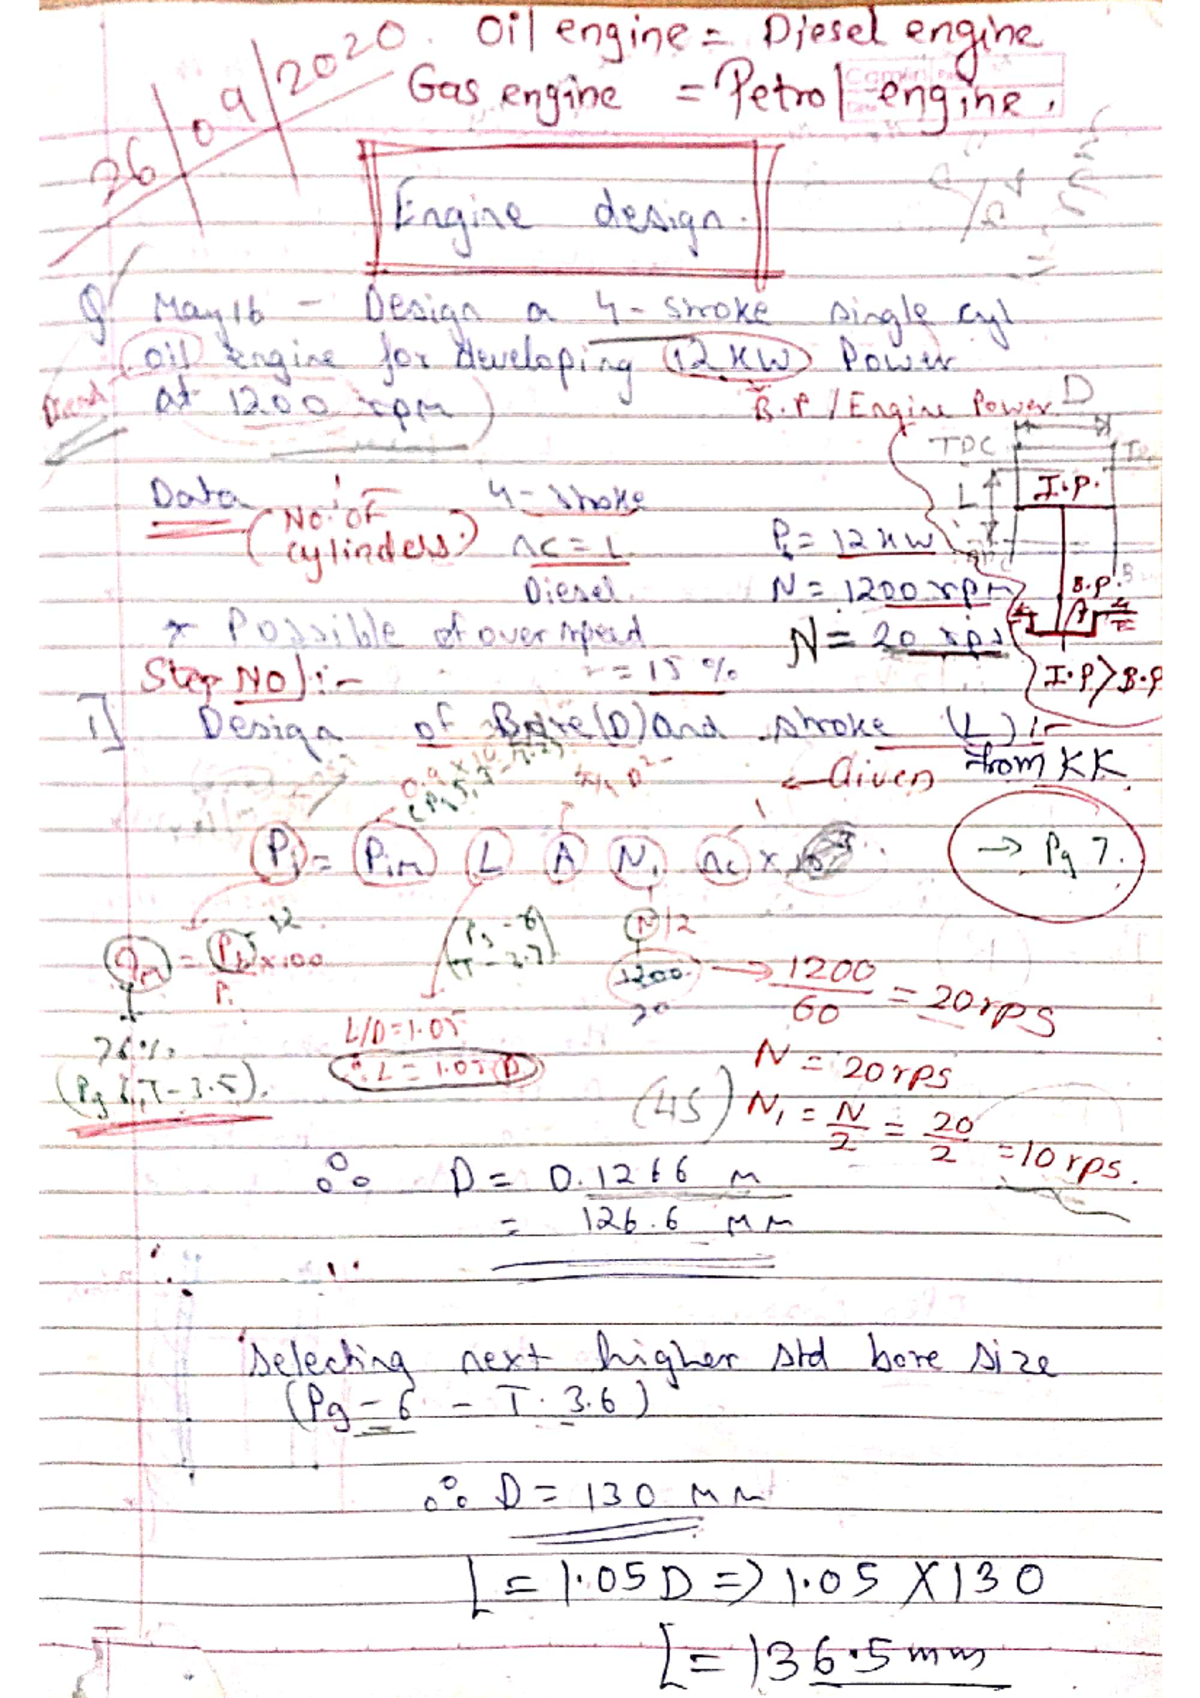 26/09/2020. Oil engine = Diesel engine
Gas engine = Petrol engine.
Engine design.
Q. May 16 - Design a 4-stroke single cyl
oil engine for developing 12 KW Power
at 1200 rpm) B.P / Engine Power
D
TDC
L I.P.
Data 4-stroke
(No. of cylinders) nc = 1 P = 12 KW
Diesel N = 1200 rpm B.P.
* Possible of overspeed N = 20 rps
= 15 % I.P > B.P
Step No 1 :-
1] Design of Bore (D) and stroke (L) :-
← Given from KK
→ Pg 7.
Pi = Pim L A N1 nc x 10
ηm = Pb x 100 (Pg - 6 T - 3.7) N/2
Pi 12
1200 → 1200/60 = 20 rps
20
L/D = 1.05
∴ L = 1.05 D
(Pg 6, T - 3.5).
N = 20 rps
(45) N1 = N/2 = 20/2 = 10 rps.
∴ D = 0.1266 m
= 126.6 mm
Selecting next higher std bore size
(Pg - 6 - T. 3.6)
∴ D = 130 mm
L = 1.05 D => 1.05 X 130
L = 136.5 mm